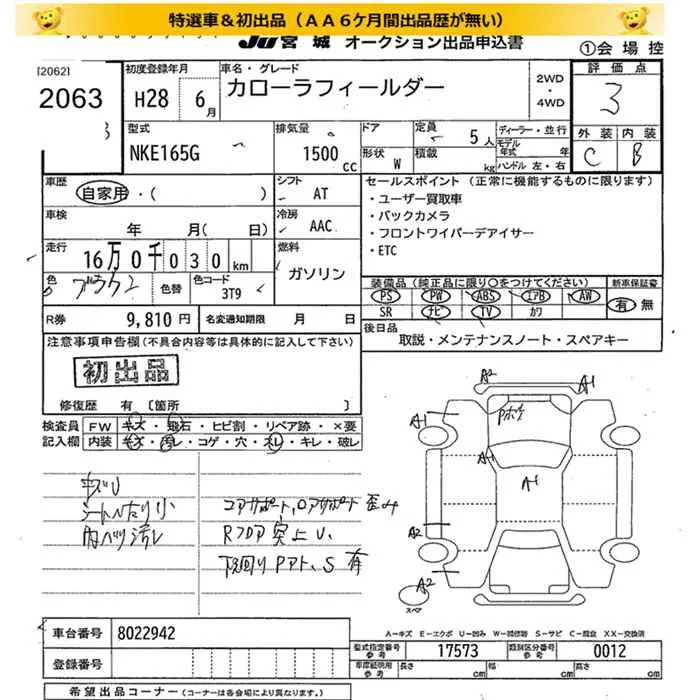 特選車＆初出品（ＡＡ６ケ月間出品歴が無い）
JU宮城 オークション出品申込書
①会場控
[2062]
2063
初度登録年月
H28 6月
車名・グレード
カローラフィールダー
2WD・4WD
評価点
3
外装 内装
C B
型式
NKE165G
排気量
1500cc
ドア
形状 W
定員 5人
積載 kg
ディーラー・並行
モデル年式 年
ハンドル 左・右
車歴
自家用・( )
シフト AT
車検 年 月( 日)
冷房 AAC
走行
16万0千030km
燃料 ガソリン
色 ブラウン 色替
色コード 3T9
R券 9,810円
名変通知期限 月 日
セールスポイント（正常に機能するものに限ります）
・ユーザー買取車
・バックカメラ
・フロントワイパーデアイサー
・ETC
装備品（純正品に限り○をつけてください）
PS PW ABS エアB AW
SR ナビ TV カワ
新車保証書
有 無
後日品
取説・メンテナンスノート・スペアキー
注意事項申告欄(不具合内容等は具体的に記入して下さい)
初出品
修復歴 有 〔箇所 〕
検査員記入欄
FW キズ・飛石・ヒビ割・リペア跡・×要
内装 キズ・汚レ・コゲ・穴・スレ・キレ・破レ
キズU
シートヘタリ小
内ハゲ汚レ
コアサポート、ロアサポート歪み
Rフロア突上U、
下回りPアト、S有
A2
A1
Pボケ
A1
A1
A1
A2
A2
スペア
A-キズ E-エクボ U-凹み W-補修跡 S-サビ C-腐食 XX-交換済
車台番号 8022942
登録番号
型式指定番号 参考 17573
類別区分番号 参考 0012
車庫証明用 参考 長さ cm 幅 cm 高さ cm
希望出品コーナー（コーナーは各会場により異なります。）